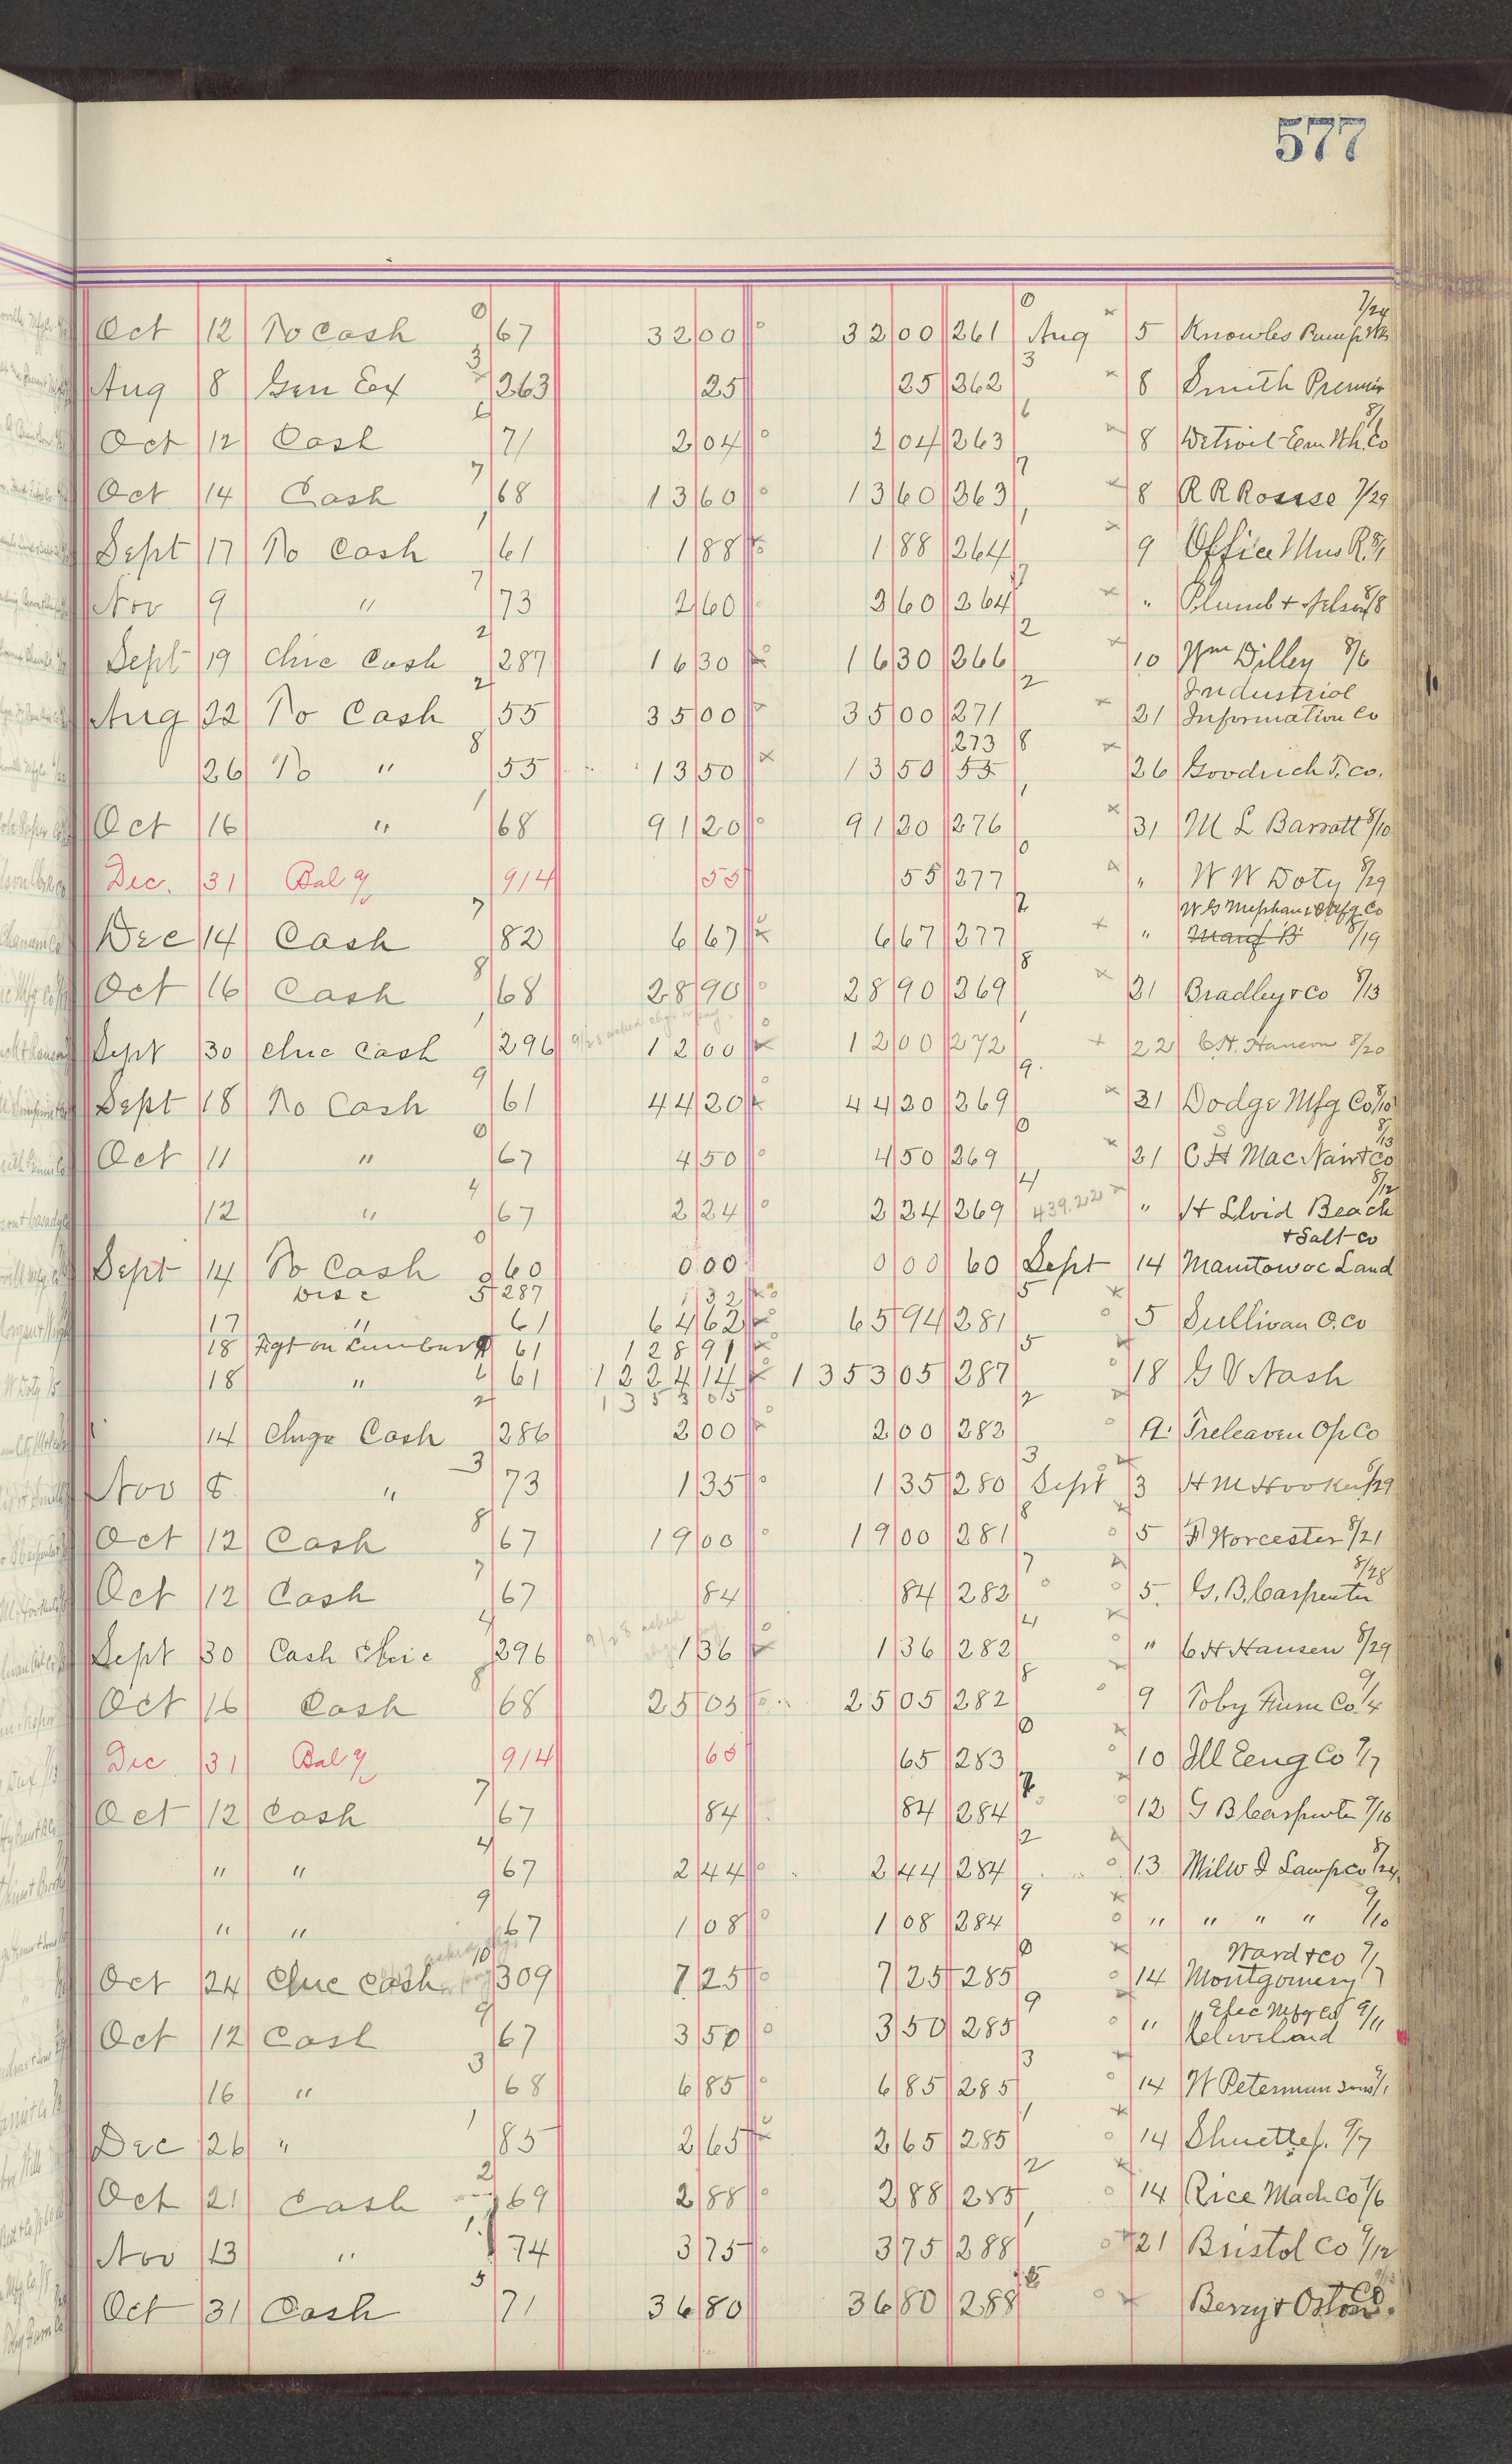 577
7/24
Oct 12 To Cash 0 67 32 00 32 00 261 0 Aug 5 Knowles Pump Wks
Aug 8 Gen Ex 3 263 25 25 262 3 8 Smith Premier
8/1
Oct 12 Cash 6 71 2 04 2 04 263 6 8 Detroit Co
Oct 14 Cash 7 68 13 60 13 60 263 7 8 R R Rossse 7/29
Sept 17 To Cash 1 61 1 88 1 88 264 1 9 Office Mus R. 8/1
Nov 9 " 7 73 2 60 2 60 264 7 " Plumb + Nelson 8/8
Sept 19 Chic Cash 2 287 16 30 16 30 266 2 10 Wm Dilley 8/6
Industrial
Aug 22 To Cash 2 55 35 00 35 00 271 2 21 Information Co
273 8
26 To " 8 55 13 50 13 50 55 26 Goodrich T. Co.
Oct 16 " 1 68 91 20 91 20 276 1 31 M L Barratt 8/10
Dec. 31 Bal 914 55 55 277 0 " W W Doty 8/29
W G Mephan & Mfg Co
Dec 14 Cash 7 82 6 67 6 67 277 7 " Manf B 8/19
Oct 16 Cash 8 68 28 90 28 90 269 8 21 Bradley & Co 8/13
9/28 asked chgo to pay.
Sept 30 Chic Cash 1 296 12 00 12 00 272 1 22 C.H. Hansen 8/20
Sept 18 To Cash 9 61 44 20 44 20 269 9 21 Dodge Mfg Co 8/10
8/13
Oct 11 " 0 67 4 50 4 50 269 0 21 C H Mac Nair & Co
8/12
12 " 4 67 2 24 2 24 269 4 439.22 " H Beach
+ Salt Co
Sept 14 To Cash 0 60 0 00 0 00 60 Sept 14 Manitowoc Land
Disc 5 287 1 32
17 " 61 64 62 65 94 281 5 5 Sullivan O. Co
18 Fgt on Lumber 61 128 91
18 " 6 61 1224 14 1353 05 287 5 18 G V Nash
1353 05
14 Chgo Cash 2 286 2 00 2 00 282 2 9. Treleaven Op Co
Nov 8 " 3 73 1 35 1 35 280 3 Sept 3 H M Hooker 8/29
Oct 12 Cash 8 67 19 00 19 00 281 8 5 F Worcester 8/21
8/28
Oct 12 Cash 7 67 84 84 282 7 5 G. B. Carpenter
9/28 asked
Sept 30 Cash Chic 4 296 1 36 1 36 282 4 " C H Hansen 8/29
Oct 16 Cash 8 68 25 05 25 05 282 8 9 Toby Furn Co. 9/4
Dec 31 Bal 914 65 65 283 0 10 Ill Eeng Co 9/7
Oct 12 Cash 7 67 84 84 284 7 12 G B Carpenter 9/10
" " 4 67 2 44 2 44 284 2 13 Milw I Lamp Co 8/24
" " 9 67 1 08 1 08 284 9 " " " " 9/10
Ward & Co 9/7
Oct 24 Chic Cash 10 309 7 25 7 25 285 0 14 Montgomery
Elec Mfg Co 9/11
Oct 12 Cash 9 67 3 50 3 50 285 9 " Cleveland
16 " 3 68 6 85 6 85 285 3 14 W Peterman Sons 9/1
Dec 26 " 1 85 2 65 2 65 285 1 14 Shuette 9/7
Oct 21 Cash 2 69 2 88 2 88 285 2 14 Rice Mach Co 9/6
Nov 13 " 1 74 3 75 3 75 288 1 21 Bristol Co 9/12
Oct 31 Cash 5 71 36 80 36 80 288 5 Berry + Co